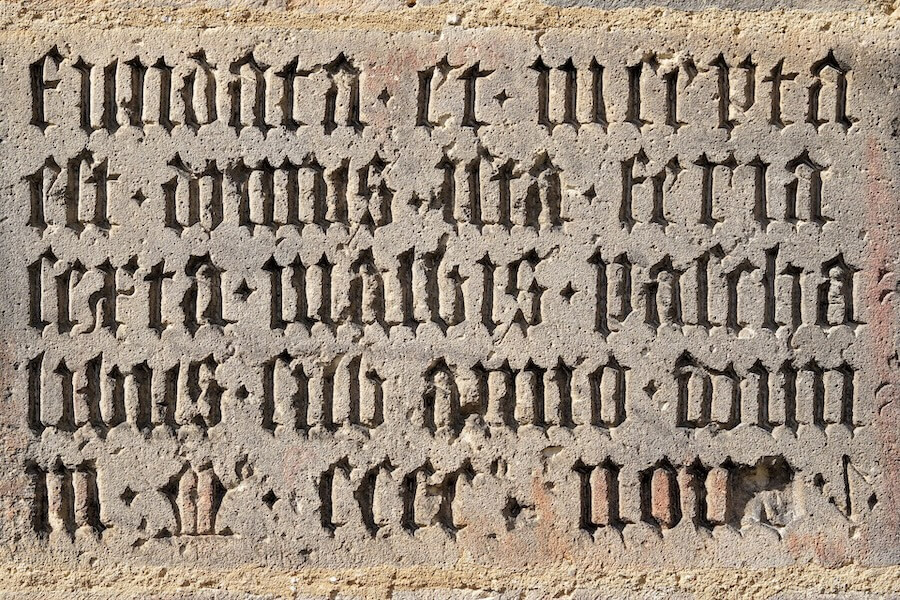 fundata · et · incepta
est · domus · ista · feria
sexta · in albis · pascha
libus · sub anno · domi
ni · m · cccc · non